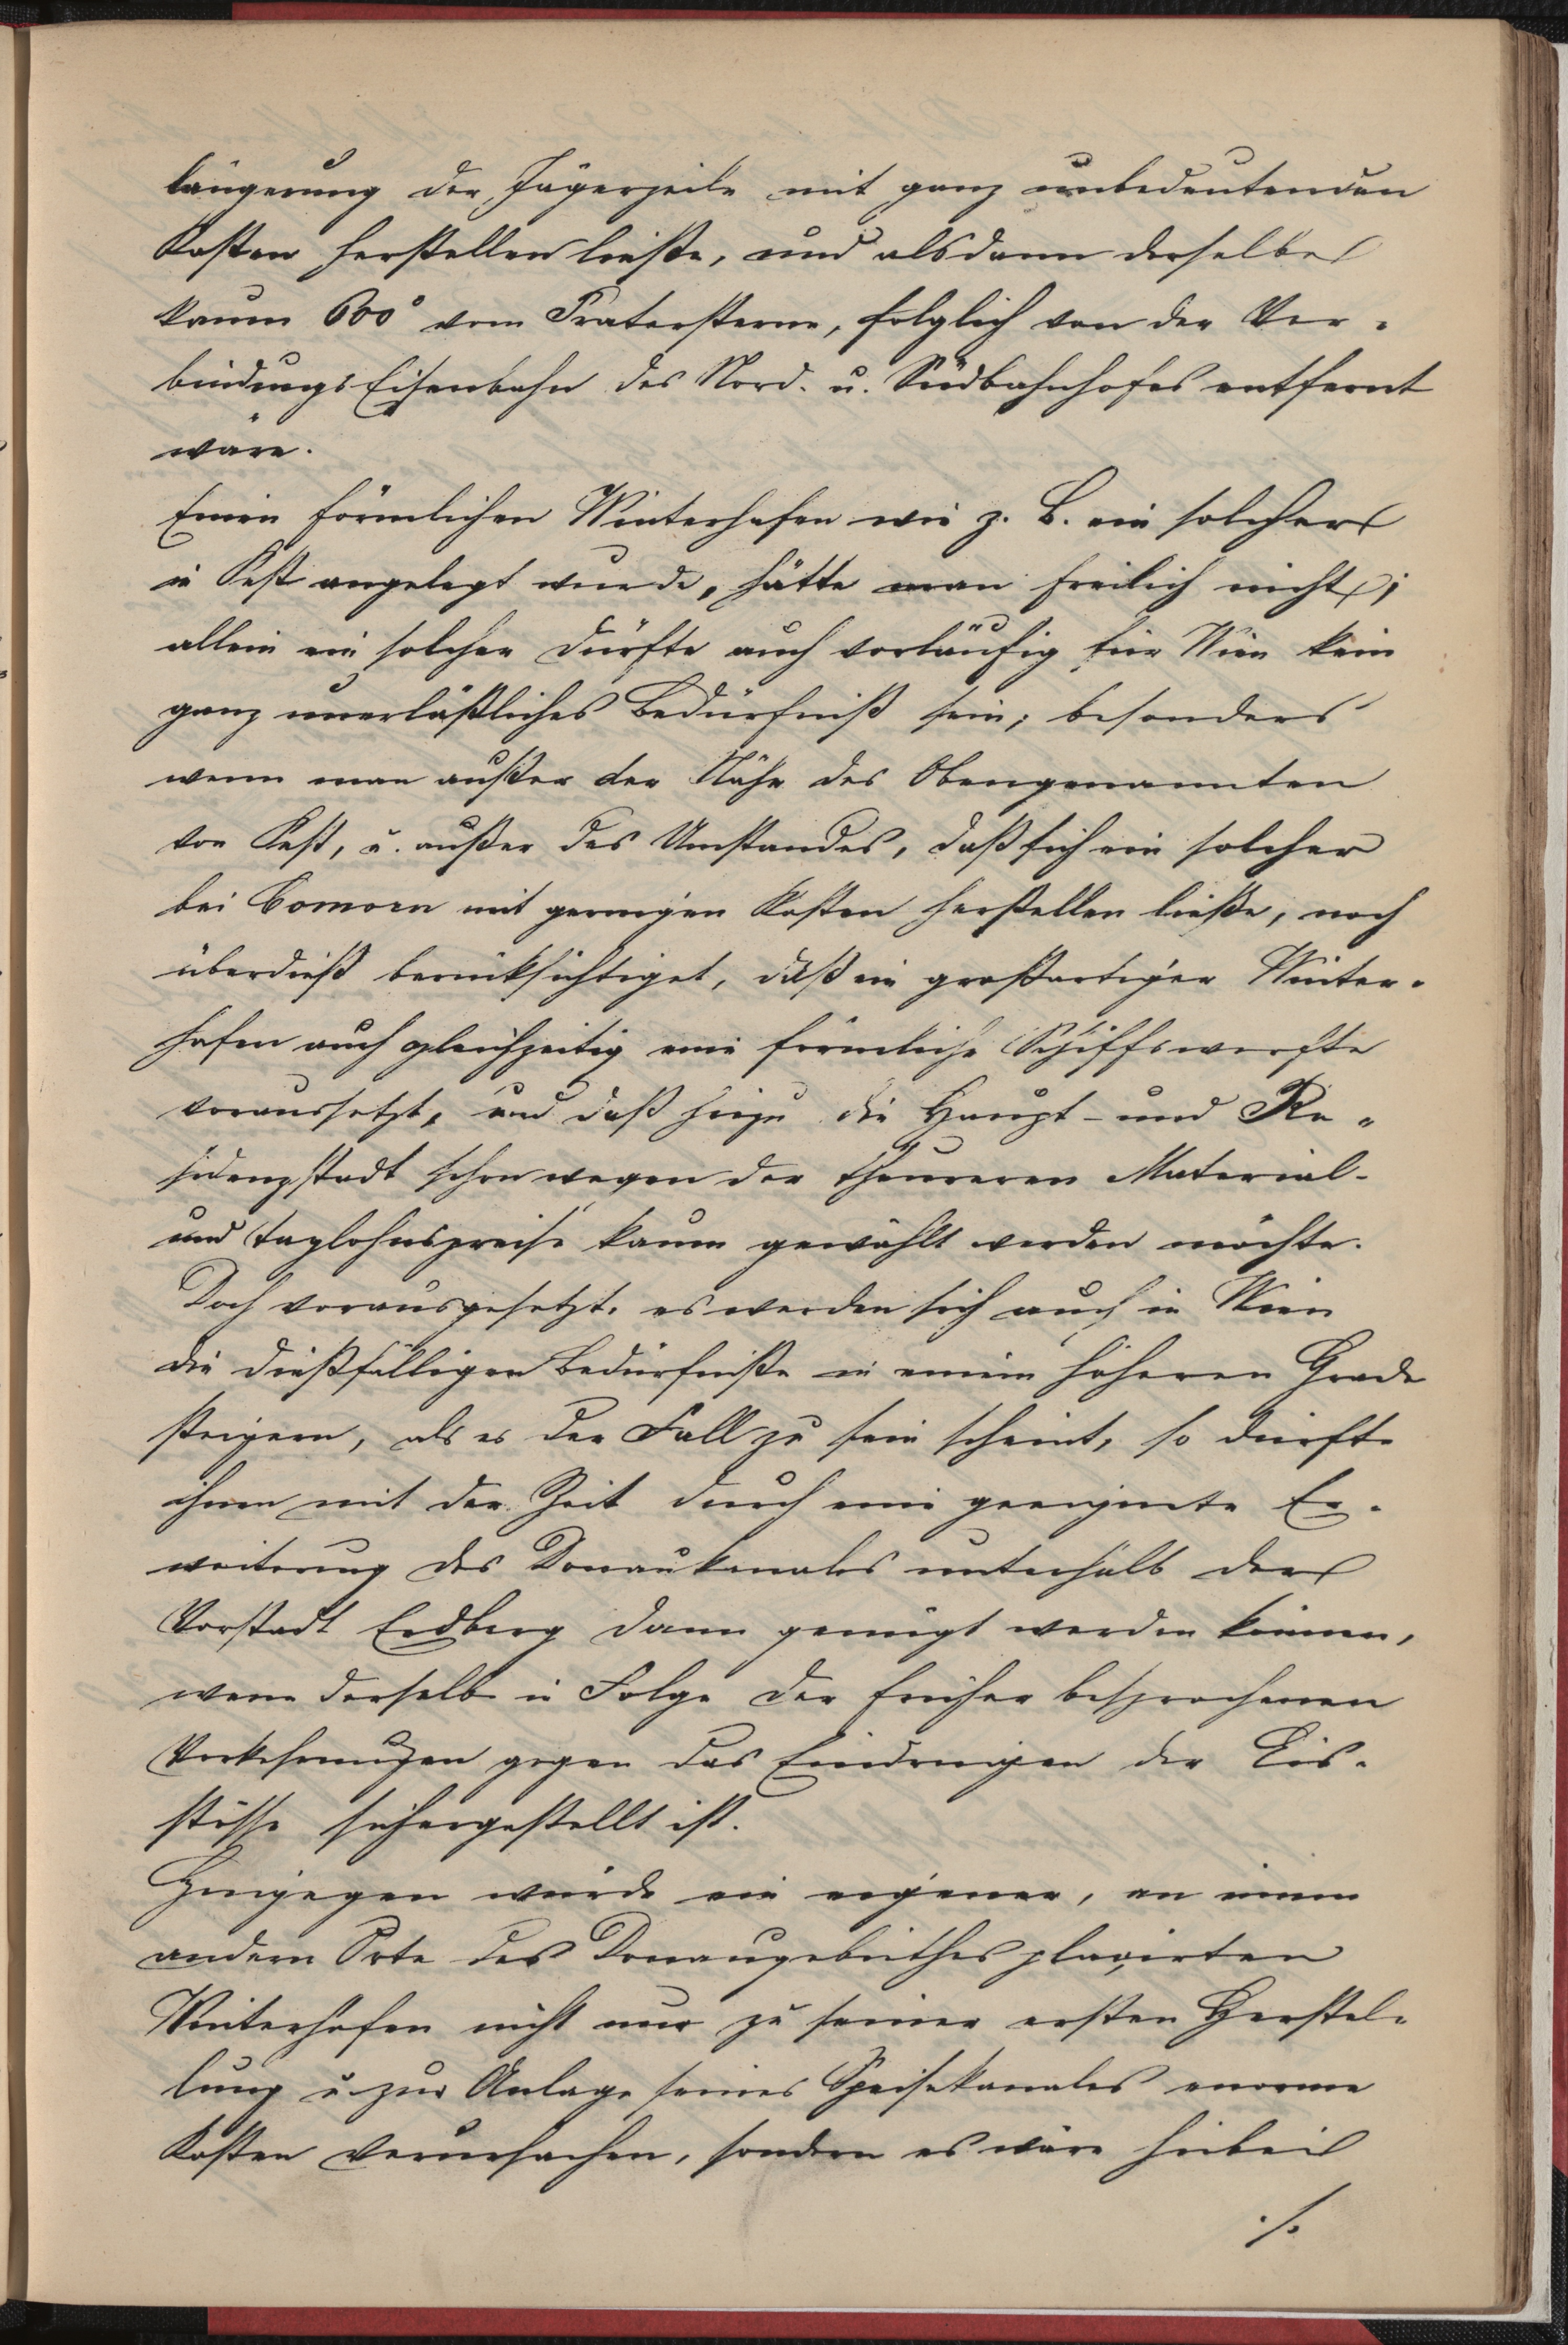 längerung der Jägerzeile mit ganz unbedeutenden
Kosten herstellen ließe, und alsdann derselbe
kaum 600° vom Praterstern, folglich von der Ver-
bindungs Eisenbahn des Nord- u. Südbahnhofes entfernt
wäre.
Einen förmlichen Winterhafen wie z. B. ein solcher
in Pest angelegt wurde, hätte man freilich nicht;
allein ein solcher dürfte auch vorläufig für Wien kein
ganz unerläßliches Bedürfniß sein; besonders
wenn man außer der Nähe des Obengenannten
von Pest, u. außer des Umstandes, daß sich ein solcher
bei Comorn mit geringen Kosten herstellen ließe, noch
überdieß berücksichtiget, daß ein großartiger Winter-
hafen auch gleichzeitig eine förmliche Schiffswerfte
voraussetzt, und daß hiezu die Haupt- und Re-
sidenzstadt schon wegen der theureren Material-
und Taglohnspreise kaum gewählt werden möchte.
Doch vorausgesetzt, es werden sich auch in Wien
die dießfälligen Bedürfniße in einem höheren Grade
steigern, als es der Fall zu sein scheint, so dürfte
ihnen mit der Zeit durch eine geeignete Er-
weiterung des Donaukanales unterhalb der
Vorstadt Erdberg dann genügt werden können,
wenn derselbe in Folge der früher besprochenen
Vorkehrungen gegen das Eindringen der Eis-
stösse sichergestellt ist.
Hingegen würde ein eigener, an einem
andern Orte des Donaugebiethes plaçirten
Winterhafen nicht nur zu seiner ersten Herstel-
lung u. zur Anlage seines Speisekanales enorme
Kosten verursachen, sondern es wäre hiebei
./.